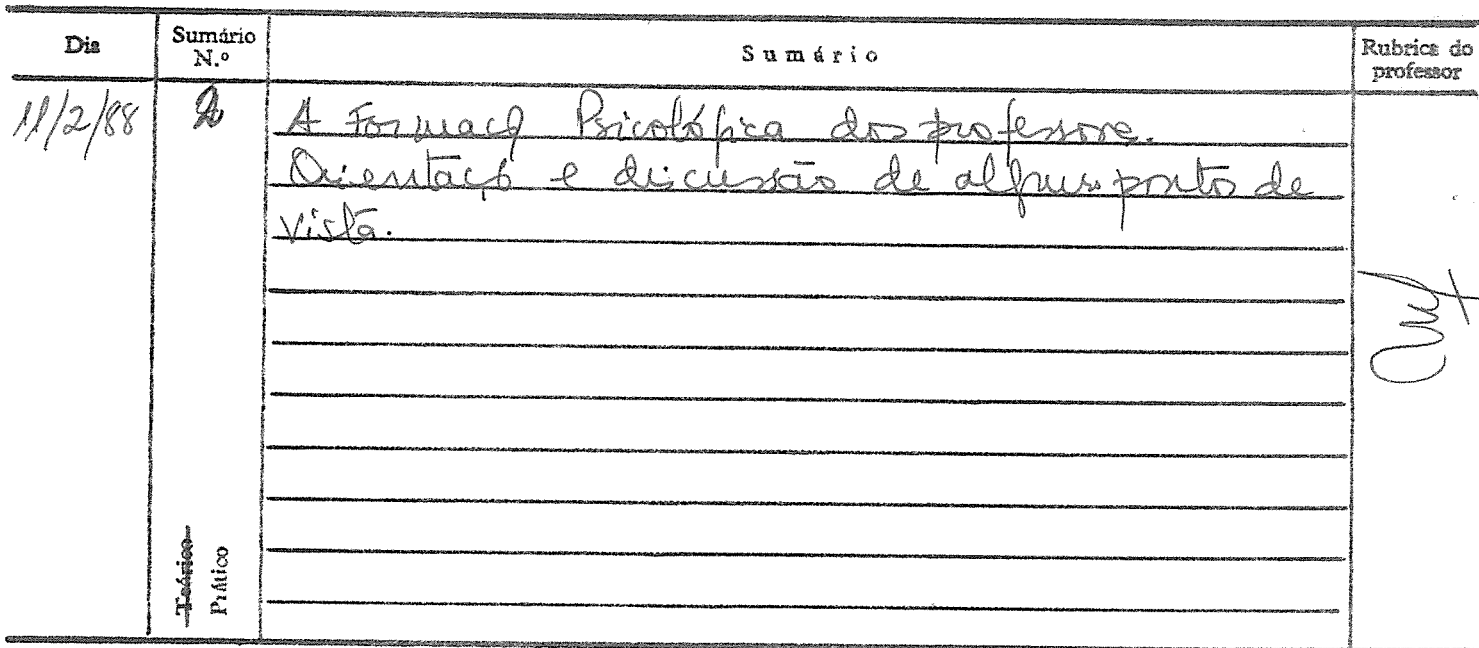 Dia
Sumário N.º
Sumário
Rubrica do professor
11/2/88
2
A Formaçã Psicológica dos professore.
Orientaçõ e discussão de alguns ponto de
vista.
Teórico
Prático